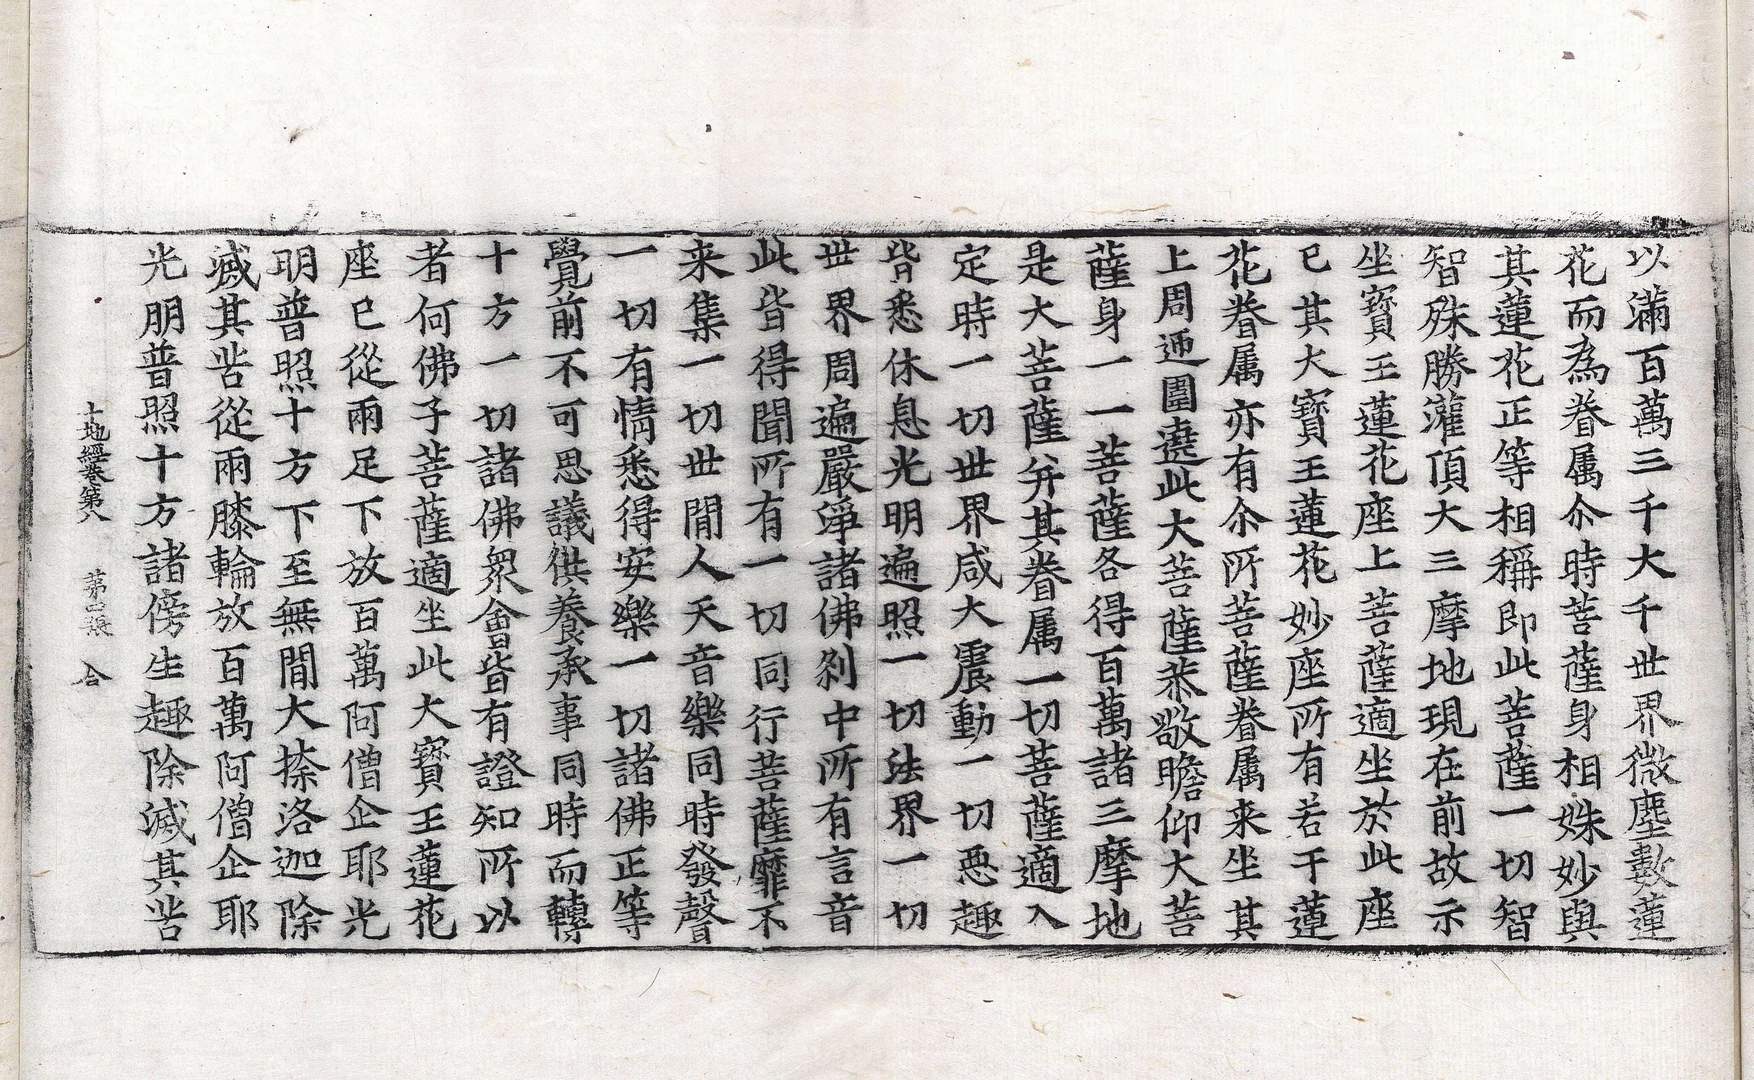 以滿百萬三千大千世界微塵數蓮
花而為眷属尒時菩薩身相姝妙與
其蓮花正等相稱即此菩薩一切智
智殊勝灌頂大三摩地現在前故示
坐寶王蓮花座上菩薩適坐於此座
已其大寶王蓮花妙座所有若干蓮
花眷属亦有尒所菩薩眷属来坐其
上周迊圍遶此大菩薩恭敬瞻仰大菩
薩身一一菩薩各得百萬諸三摩地
是大菩薩并其眷属一切菩薩適入
定時一切世界咸大震動一切惡趣
皆悉休息光明遍照一切法界一切
世界周遍嚴淨諸佛剎中所有言音
此皆得聞所有一切同行菩薩靡不
来集一切世間人天音樂同時發聲
一切有情悉得安樂一切諸佛正等
覺前不可思議供養承事同時而轉
十方一切諸佛衆會皆有證知所以
者何佛子菩薩適坐此大寶王蓮花
座已從兩足下放百萬阿僧企耶光
明普照十方下至無間大捺洛迦除
滅其苦從兩膝輪放百萬阿僧企耶
光明普照十方諸傍生趣除滅其苦
十地經卷第八 第二張 合